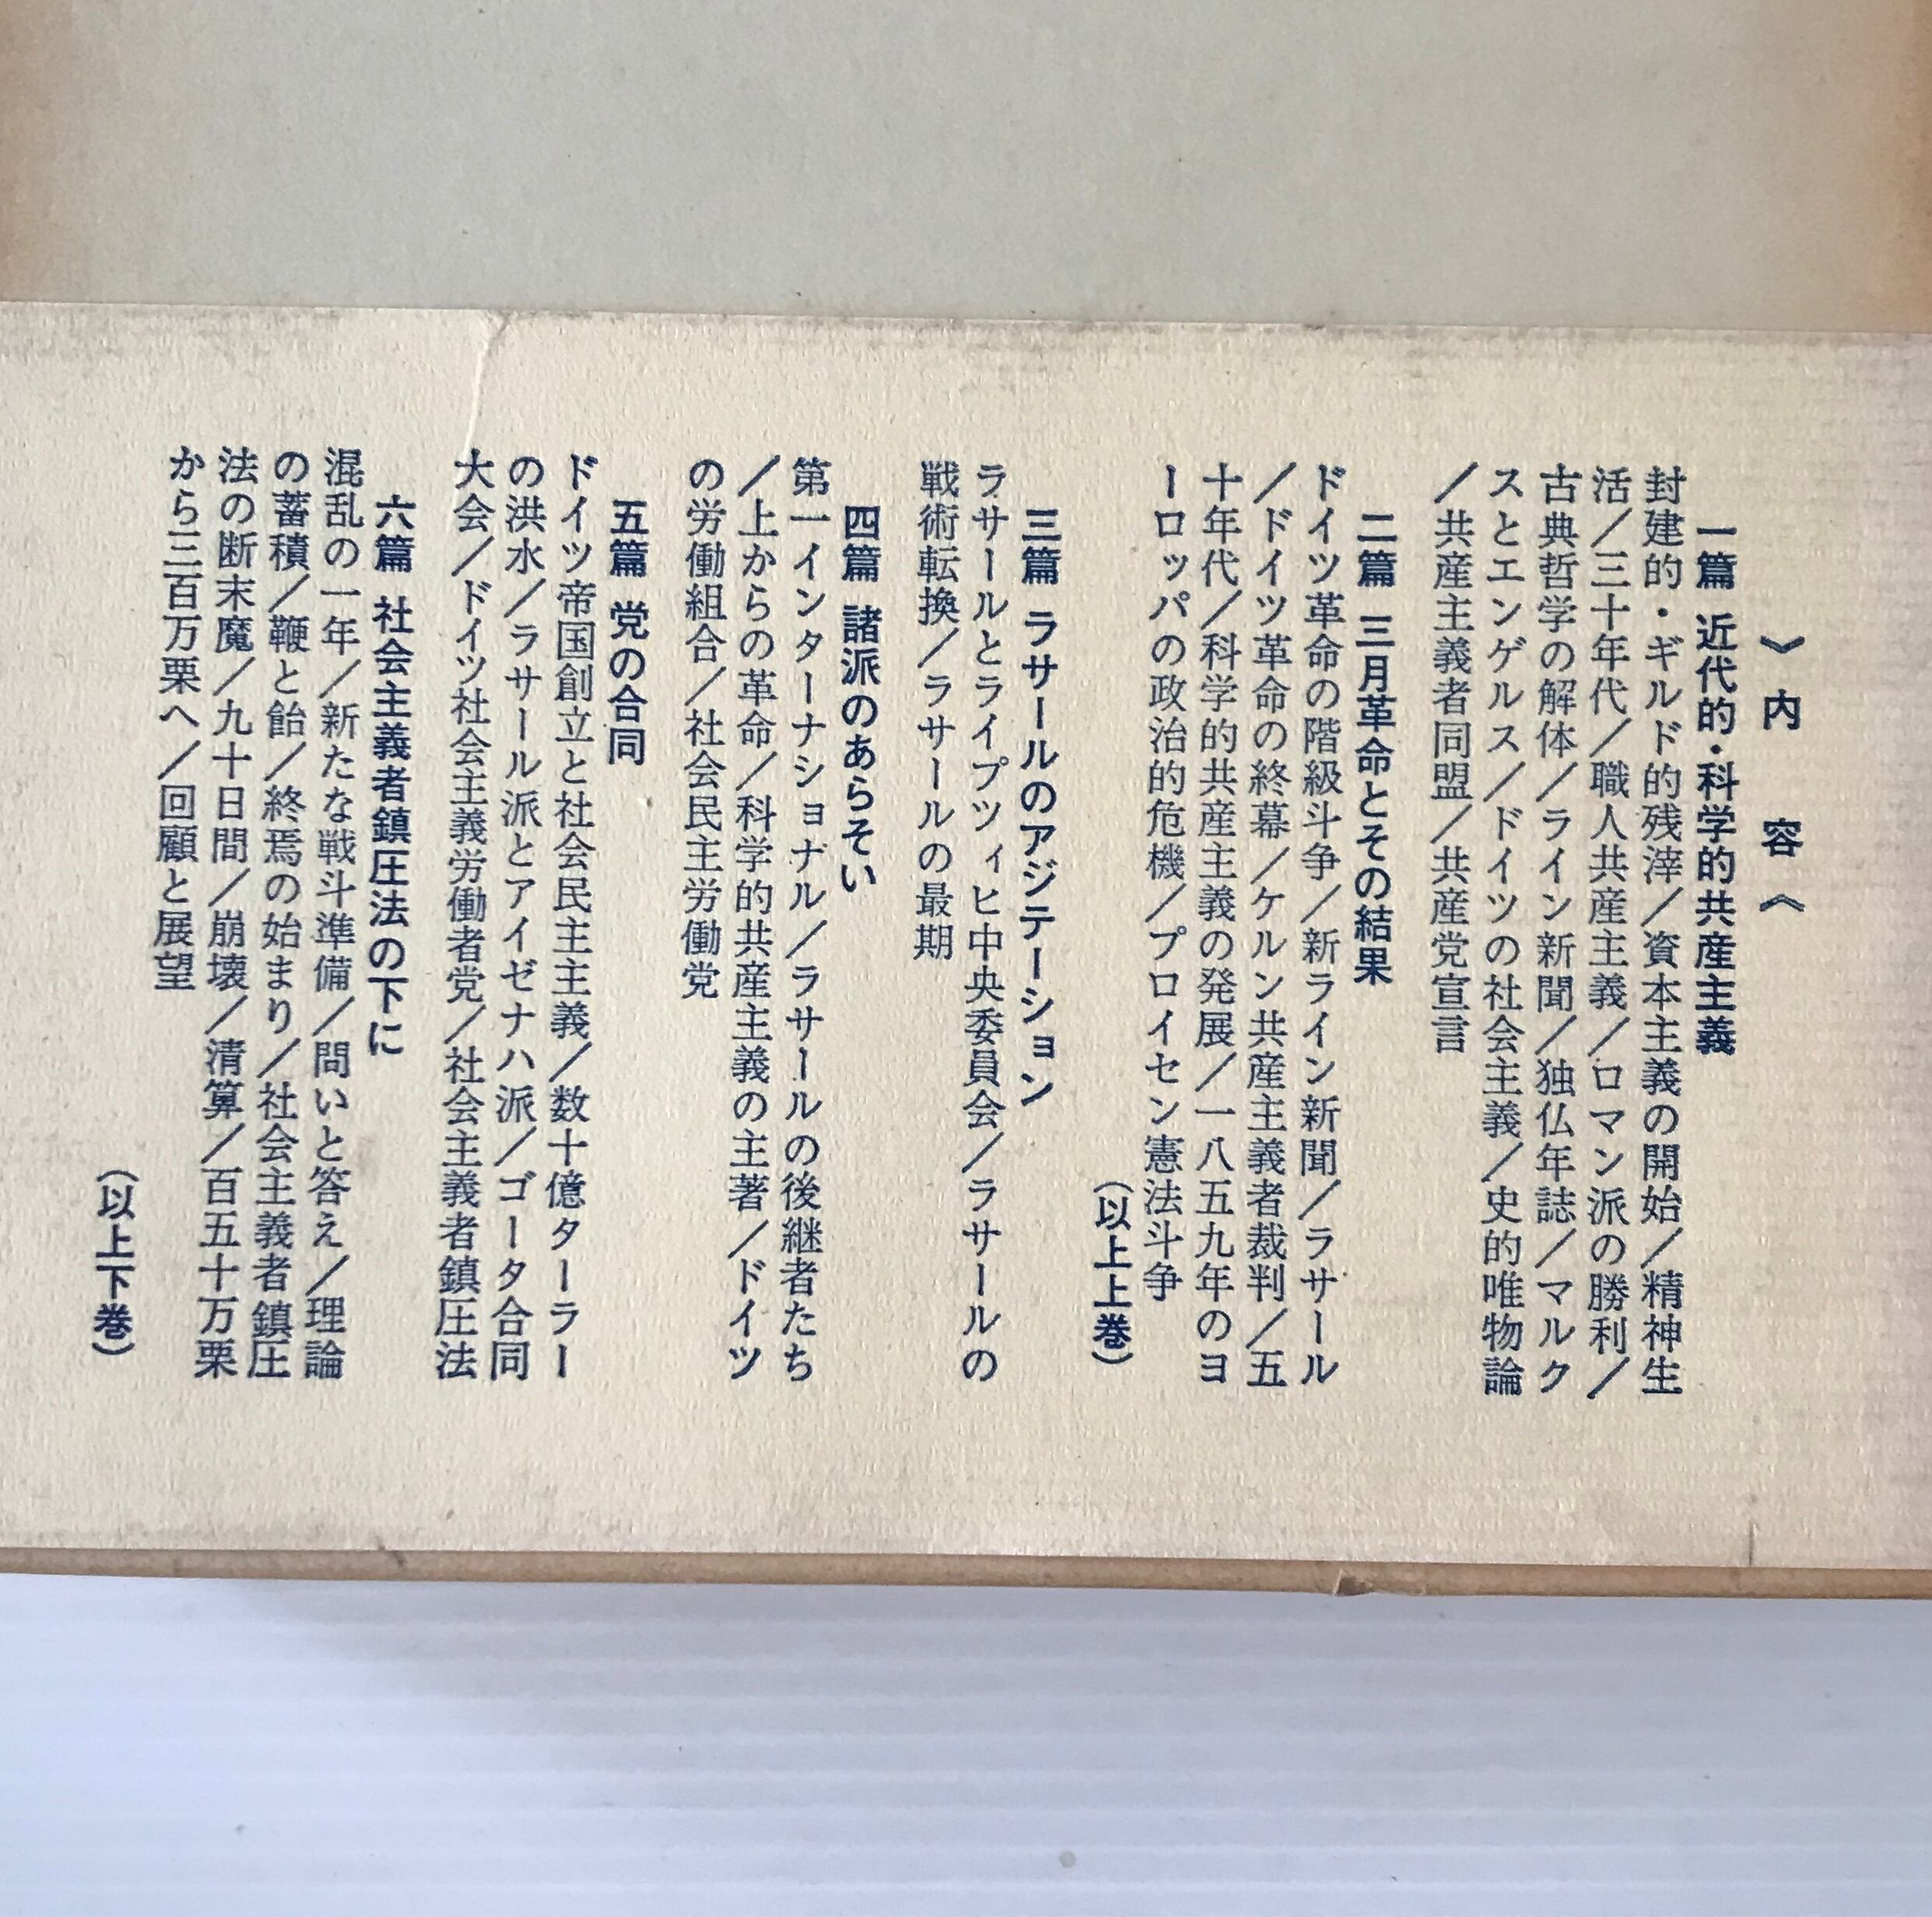 》内容《
一篇 近代的・科学的共産主義
封建的・ギルド的残滓／資本主義の開始／精神生
活／三十年代／職人共産主義／ロマン派の勝利／
古典哲学の解体／ライン新聞／独仏年誌／マルク
スとエンゲルス／ドイツの社会主義／史的唯物論
／共産主義者同盟／共産党宣言
二篇 三月革命とその結果
ドイツ革命の階級斗争／新ライン新聞／ラサール
／ドイツ革命の終幕／ケルン共産主義者裁判／五
十年代／科学的共産主義の発展／一八五九年のヨ
ーロッパの政治的危機／プロイセン憲法斗争
（以上上巻）
三篇 ラサールのアジテーション
ラサールとライプツィヒ中央委員会／ラサールの
戦術転換／ラサールの最期
四篇 諸派のあらそい
第一インターナショナル／ラサールの後継者たち
／上からの革命／科学的共産主義の主著／ドイツ
の労働組合／社会民主労働党
五篇 党の合同
ドイツ帝国創立と社会民主主義／数十億ターラー
の洪水／ラサール派とアイゼナハ派／ゴータ合同
大会／ドイツ社会主義労働者党／社会主義者鎮圧法
六篇 社会主義者鎮圧法の下に
混乱の一年／新たな戦斗準備／問いと答え／理論
の蓄積／鞭と飴／終焉の始まり／社会主義者鎮圧
法の断末魔／九十日間／崩壊／清算／百五十万票
から三百万票へ／回顧と展望
（以上下巻）